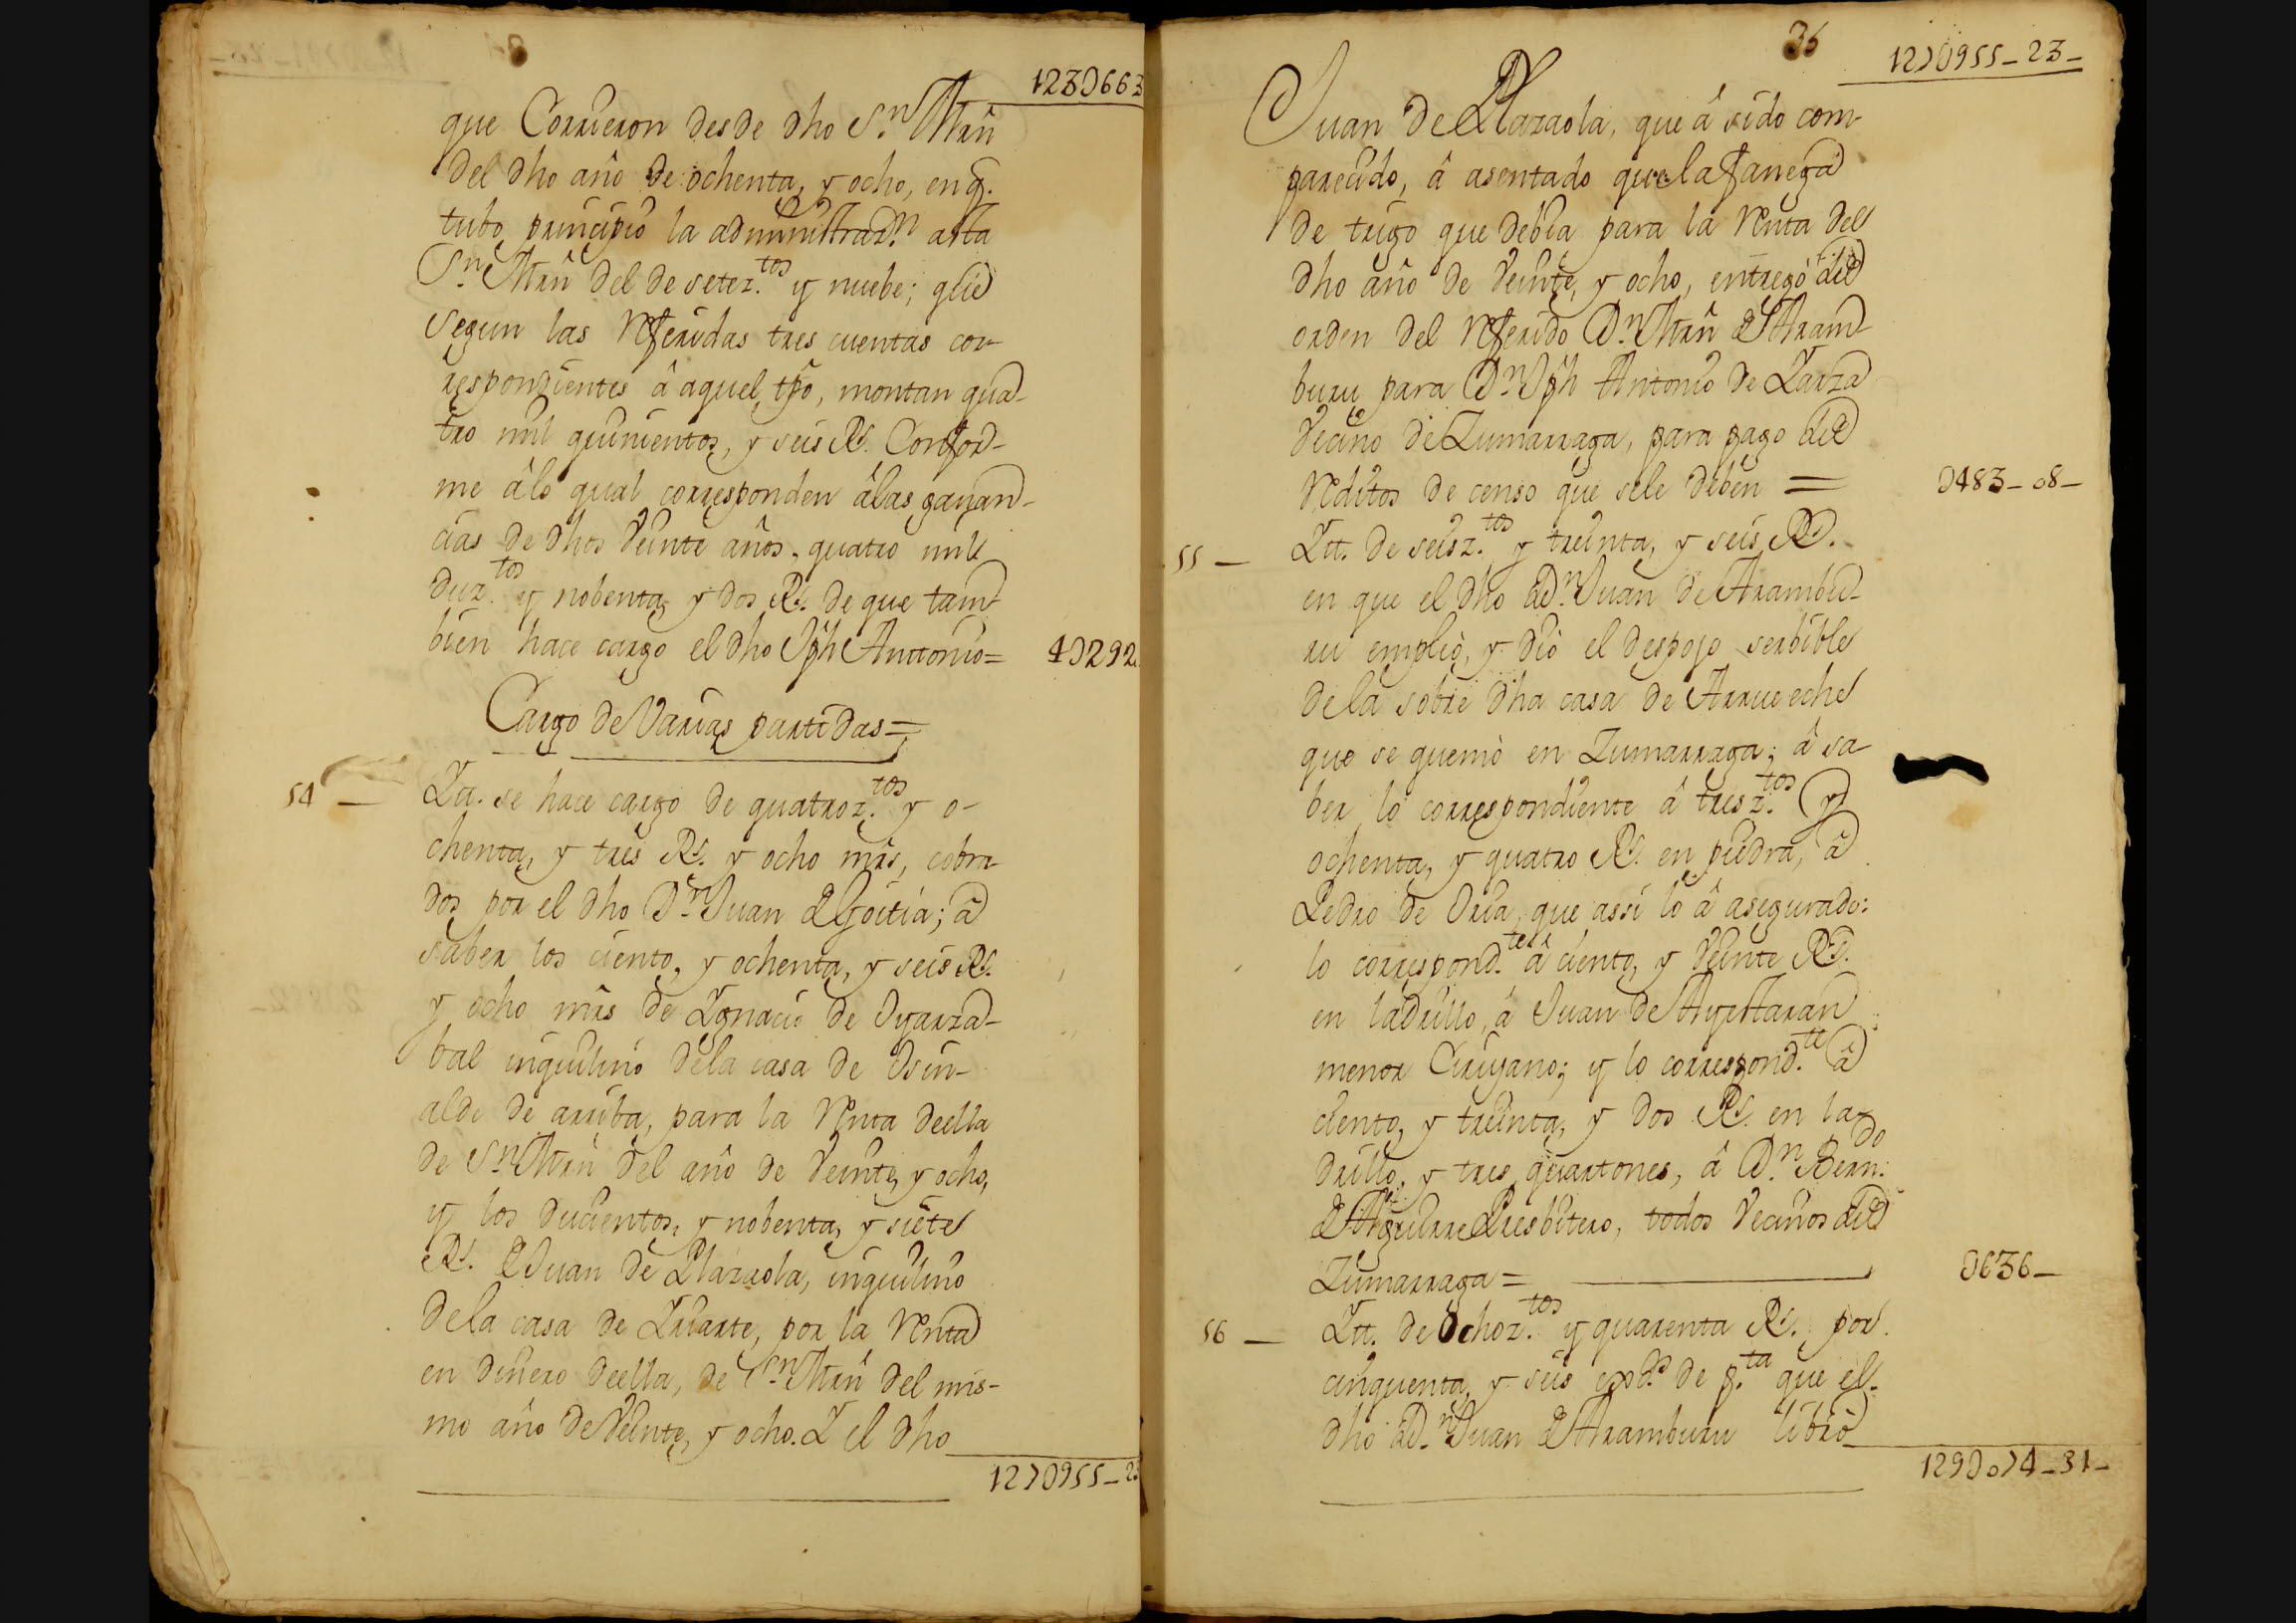 123U663
que Corrieron desde dho Sn. Mrn̂
del dho año de ochenta, y ocho, en q.
tubo principio la administrazn. asta
Sn. Mrn̂ del de setez.tos y nuebe; que
segun las Referidas tres cuentas cor-
respondientes â aquel tp̂o, montan qua-
tro mil quinientos, y seis Rs. Confor-
me âlo qual corresponden âlas ganan-
cias de dhos Veinte años, quatro mil
duz.tos y nobenta, y dos Rs. de que tam-
bien hace cargo el dho Jph Anttonio=
4U292
Cargo de Varias partidas=
54 — Itt. se hace cargo de quatroz.tos y o-
chenta, y tres Rs. y ocho mrs, cobra-
dos por el dho Dn. Juan de Goitia; â
saber los ciento, y ochenta, y seis Rs.
y ocho mrs de Ignacio de Oyarza-
bal inquilino dela casa de Osin-
alde de arriba, para la Renta deella
de Sn. Mrn̂ del año de Veinte, y ocho,
y los ducientos, y nobenta, y siete
Rs. de Juan de Plazaola, inquilino
dela casa de Iriarte, por la Renta
en dinero deella, de Sn. Mrn̂ del mis-
mo año de Veinte, y ocho. I el dho
127U955-23
36
127U955-23-
Juan de Plazaola, que â sido com-
parecido, â asentado que la fanega
de trigo que debia para la Renta del
dho año de Veinte, y ocho, entregò de
orden del Referido Dn. Mrn̂ de Aram-
buru para Dn. Jph Antonio de Zarza
Vecino de Zumarraga, para pago de
Reditos de censo que sele deben =
U483-08-
55 — Itt. de seisz.tos y treinta, y seis Rs.
en que el dho Dn. Juan de Arambu-
ru empleò, y diò el despojo serbible
dela sobre dha casa de Arrueche
que se quemò en Zumarraga; â sa-
ber lo correspondiente â tresz.tos y
ochenta, y quatro Rs. en piedra, â
Pedro de Oria, que assi lo â asegurado:
lo correspond.te â ciento, y Veinte Rs.
en ladrillo, â Juan de Ayestaran
menor Cirujano; y lo correspond.te â
ciento, y treinta, y dos Rs. en la-
drillo, y tres quartones, â Dn. Bern.do
de Aguirre Presbitero, todos Vecinos de
Zumarraga =
U636-
56 — Itt. de Ochoz.tos y quarenta Rs. por
cinquenta, y seis de p.ta que el
dho Dn. Juan de Aramburu librò
129U074-31-